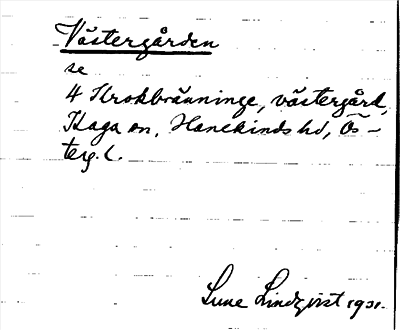 Västergården
se
4 Krokbränninge, västergård,
Kaga sn, Hanekinds hd, Ös-
terg. l.
Sune Lindqvist 1931.